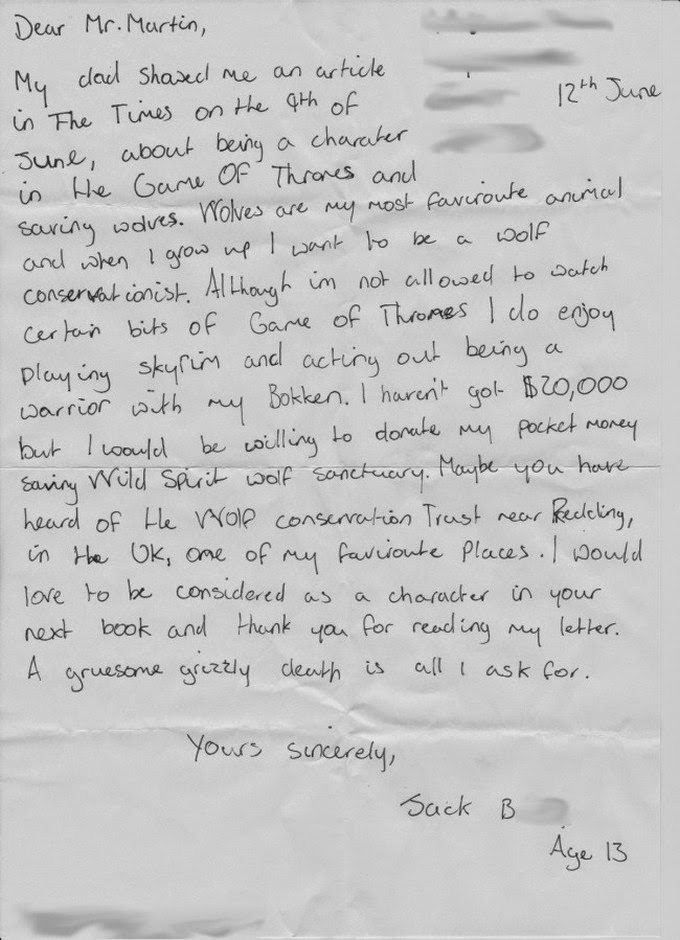 Dear Mr. Martin,
12th June
My dad shared me an article
in The Times on the 9th of
June, about being a charater
in the Game Of Thrones and
saving wolves. Wolves are my most faviroute animal
and when I grow up I want to be a wolf
conservationist. Although im not allowed to watch
certain bits of Game of Thrones I do enjoy
playing skyrim and acting out being a
warrior with my Bokken. I haven't got $20,000
but I would be willing to donate my pocket money
saving Wild Spirit wolf sanctuary. Maybe you have
heard of the Wolf conservation Trust near Redding,
in the UK, one of my faviroute places. I would
love to be considered as a character in your
next book and thank you for reading my letter.
A gruesome grizzly death is all I ask for.
Yours sincerely,
Jack B
Age 13